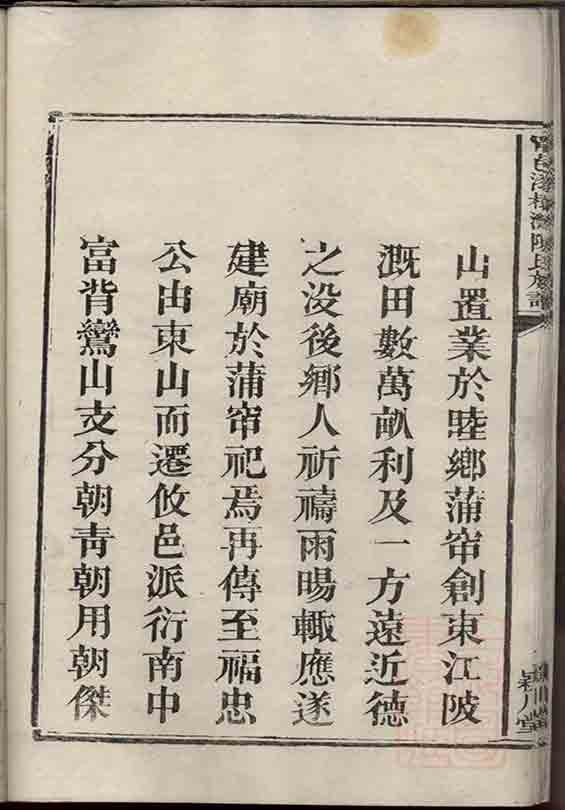 山置業於睦鄉蒲帘創東江陂
溉田數萬畝利及一方遠近德
之没後鄉人祈禱雨暘輙應遂
建廟於蒲帘祀焉再傳至福忠
公由東山而遷攸邑派衍南中
富背鸞山支分朝青朝用朝傑
陳氏族譜
潁川堂